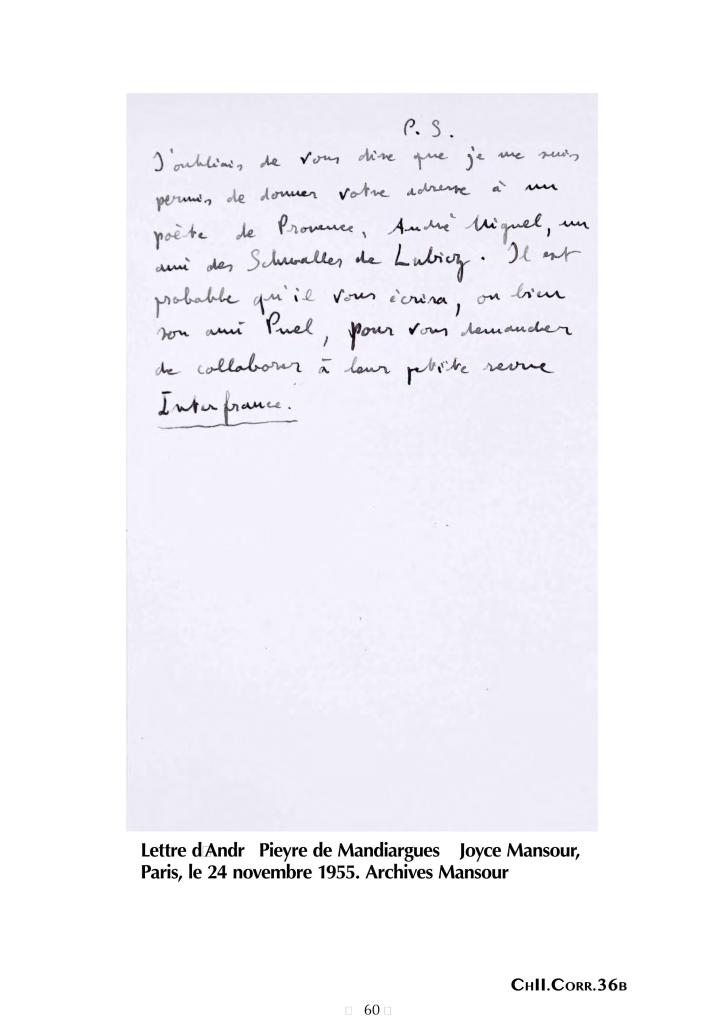 P. S.
J'oubliais de vous dire que je me suis
permis de donner votre adresse à un
poète de Provence, André Miguel, un
ami des Schwaller de Lubicz. Il est
probable qu'il vous écrira, ou bien
son ami Puel, pour vous demander
de collaborer à leur petite revue
Interfrance.
Lettre d'Andr Pieyre de Mandiargues Joyce Mansour,
Paris, le 24 novembre 1955. Archives Mansour
CHII.CORR.36B
60